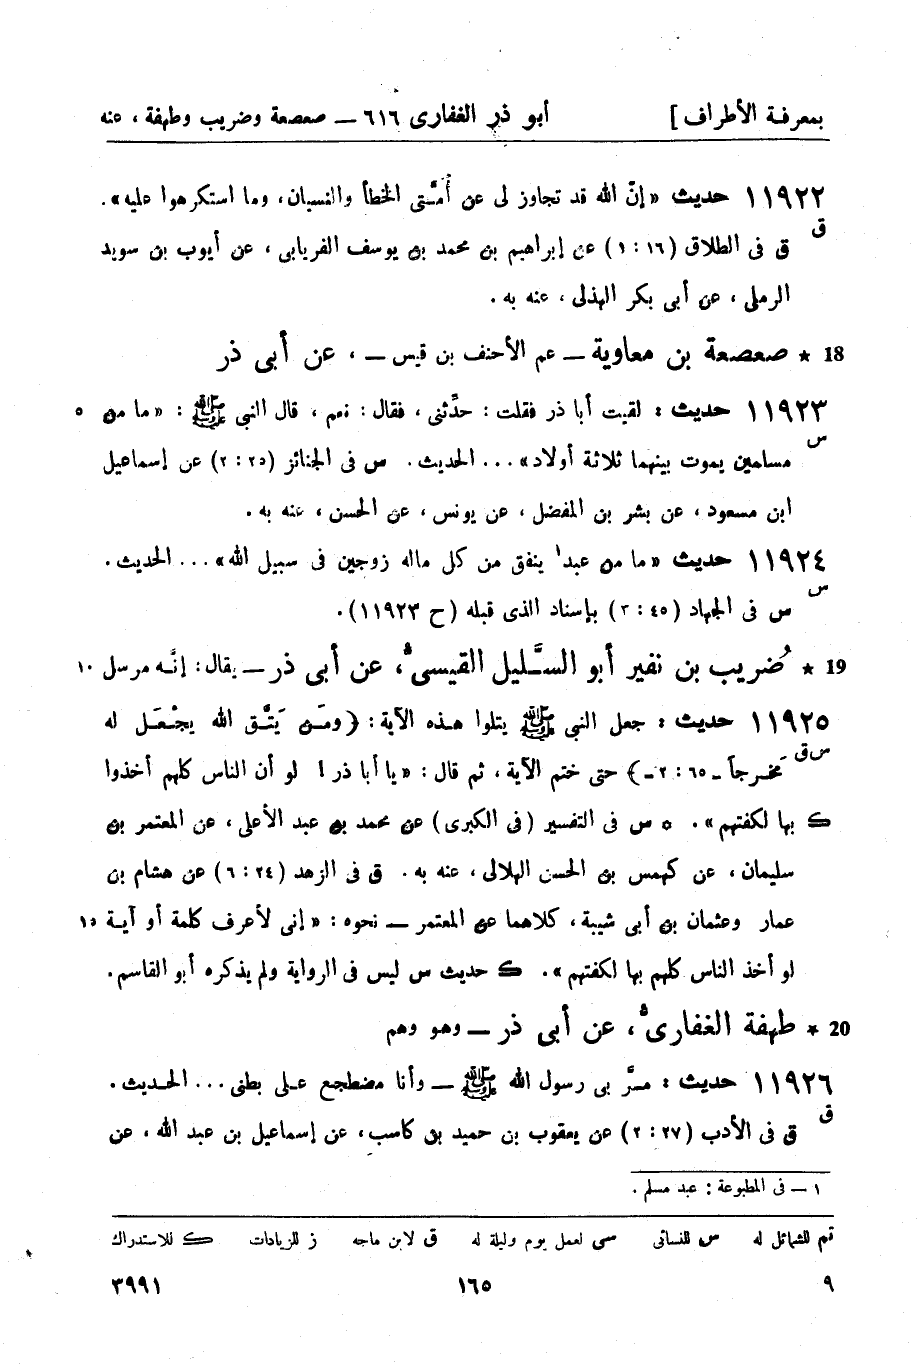 بمعرفة الأطراف ] أبو ذر الغفارى ٦١٦ ــ صعصعة وضريب وطهفة ، عنه
١١٩٢٢ حديث « إنّ الله قد تجاوز لى عن أُمَّتى الخطأ والنسيان، وما استكرهوا عليه».
ق
ق فى الطلاق (١٦ : ١) عن إبراهيم بن محمد بن يوسف الفريابى، عن أيوب بن سويد
الرملى، عن أبى بكر الهذلى، عنه به.
18 * صعصعة بن معاوية ــ عم الأحنف بن قيس ــ ، عن أبى ذر
١١٩٢٣ حديث : لقيت أبا ذر فقلت: حدِّثنى، فقال: نعم، قال النبى ﷺ : « ما من ٥
س
مسلمين يموت بينهما ثلاثة أولاد» ... الحديث. س فى الجنائز (٢٥ : ٢) عن إسماعيل
ابن مسعود، عن بشر بن المفضل، عن يونس، عن الحسن، عنه به.
١١٩٢٤ حديث « ما من عبد١ ينفق من كل ماله زوجين فى سبيل الله» ... الحديث.
س
س فى الجهاد (٤٥ : ٢) بإسناد الذى قبله (ح ١١٩٢٣).
19 * ضُريب بن نفير أبو السَّليل القيسى، عن أبى ذر ــ يقال: إنَّه مرسل ١٠
١١٩٢٥ حديث : جعل النبى ﷺ يتلوا هذه الآية: ﴿ومَن يَتَّق الله يجْعَل له
س ق
مَخرجاً ـ ٦٥ : ٢ ـ﴾ حتى ختم الآية، ثم قال: « يا أبا ذر! لو أن الناس كلهم أخذوا
ك بها لكفتهم». ٥ س فى التفسير (فى الكبرى) عن محمد بن عبد الأعلى، عن المعتمر بن
سليمان، عن كهمس بن الحسن الهلالى، عنه به. ق فى الزهد (٢٤ : ٦) عن هشام بن
عمار وعثمان بن أبى شيبة، كلاهما عن المعتمر ــ نحوه: « إنى لأعرف كلمة أو آية ١٥
لو أخذ الناس كلهم بها لكفتهم». ك حديث س ليس فى الرواية ولم يذكره أبو القاسم.
20 * طهفة الغفارى، عن أبى ذر ــ وهو وهم
١١٩٢٦ حديث : مرَّ بى رسول الله ﷺ ــ وأنا مضطجع على بطنى ... الحديث.
ق
ق فى الأدب (٢٧ : ٢) عن يعقوب بن حميد بن كاسب، عن إسماعيل بن عبد الله، عن
١ ــ فى المطبوعة : عبد مسلم.
تم للشمائل له س للنسائى سى لعمل يوم وليلة له ق لابن ماجه ز للزيادات ك للاستدراك
٩ ١٦٥ ٣٩٩١